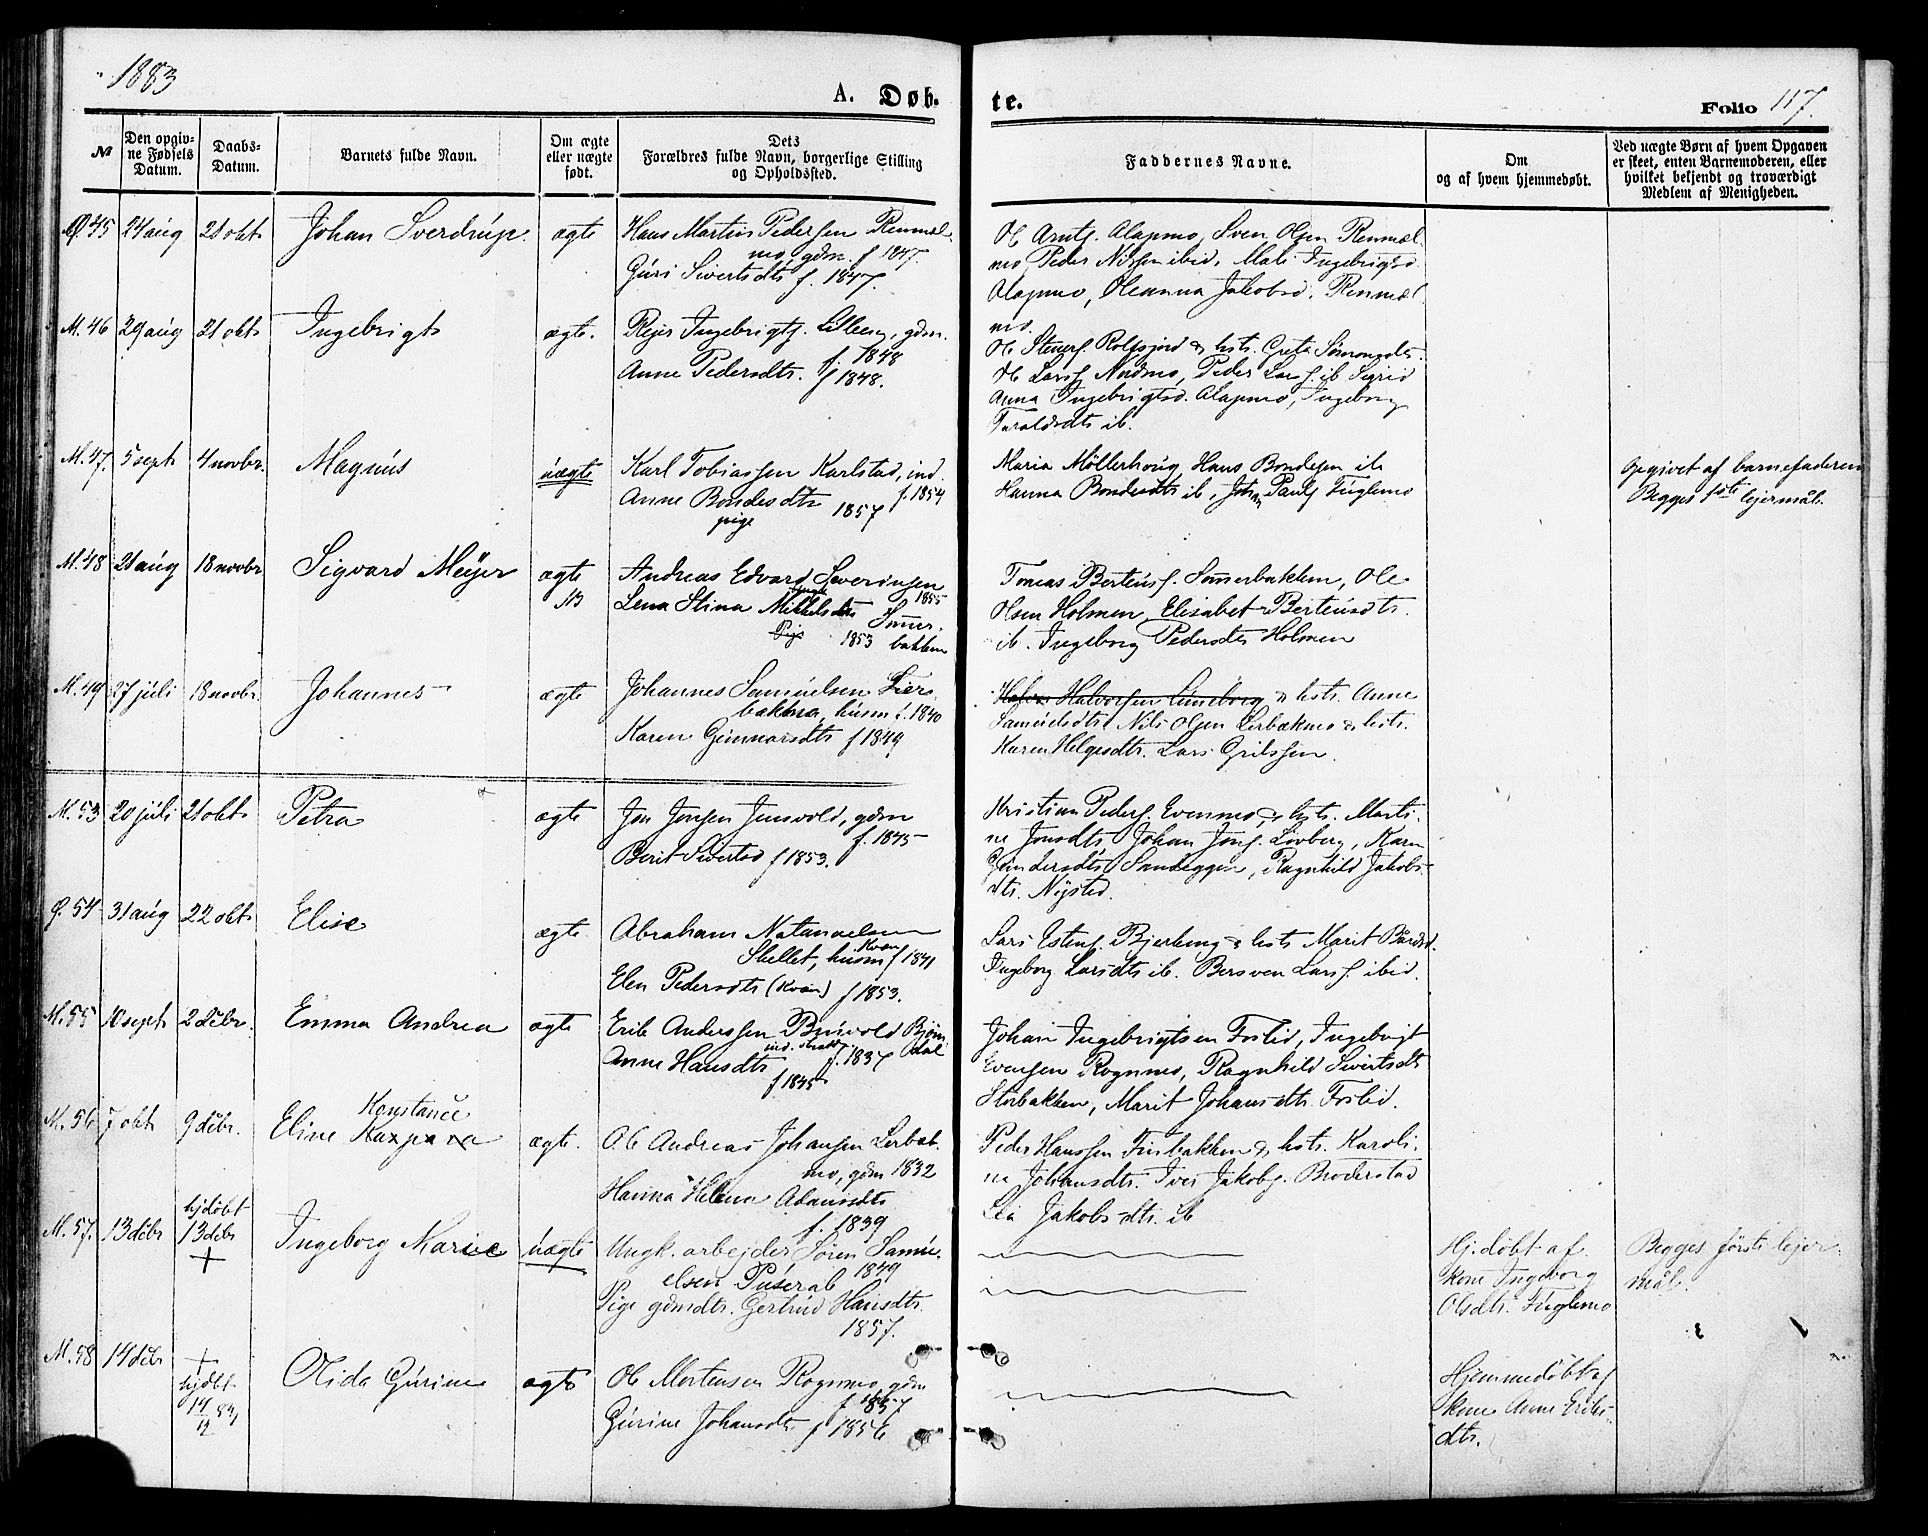 1883
A. Døb-
te.
Folio 117.
№
Den opgiv-
ne Fødsels
Datum.
Daabs-
Datum.
Barnets fulde Navn.
Om ægte
eller uægte
født.
Dets
Forældres fulde Navn, borgerlige Stilling
og Opholdssted.
Faddernes Navne.
Om
og af hvem hjemmedøbt.
Ved uægte Børn af hvem Opgaven
er skeet, enten Barnemoderen, eller
hvilket bekjendt og troværdigt
Medlem af Menigheden.
45 24 aug 21 okt Johan Sverdrup. ægte
Hans Martin Pedersen Rennæl-
mo, gdm. f 1847
Guri Sivertsdtr f. 1847.
Ol Arntz. Alapmo, Sven Olsen Rennæl-
mo, Peder Nilssen ibid, Mali Ingebrigtsd.
Alapmo, Oleanna Jakobsd. Rennæl-
mo.
M. 46 29 aug 21 okt Ingebrigt ægte.
Ingebrigtf. Lilleeng, gdm.
f. 1848
Anne Pedersdtr. f 1848.
Ol Stenerf. Rolfsjord & hst. Greta Simonsdtr.
Ol Larsf. Nudmo, Peder Larsf. ib Sigrid
Anna Ingebrigtsd. Alapmo, Ingeborg
Taraldsdtr ib.
M. 47. 5 sept 4 novbr. Magnus uægte
Karl Tobiassen Karlstad, ind.
f. 1854
Anne Bondesdtr 1857
pige
Maria Möllerhoug, Hans Bondesen ib
Hanna Bondesdtr ib, Johan Paulf Fuglemo
Opgivet af barnefaderen
Begges 1ste lejermål.
M. 48 21 aug 18 novbr Sigvard Meyer ægte
NB
Andreas Edvard Severinsen
1855
Lena Stina Mikkelsdtr Sömer-
Pige 1853 bakken
Tomas Berteusf. Sömerbakken, Ole
Olsen Holmen, Elisabet Berteusdtr.
ib. Ingeborg Pedersdtr Holmen
M. 49 27 juli 18 novbr. Johannes ægte
Johannes Samuelsen
bakmo, husm f. 1840
Karen Gunnarsdtr f 1849
Halvor Halvorsen Luneborg & hst. Anne
Samuelsdtr Nils Olsen Lerbækmo & hst.
Karen Helgesdtr. Lars
M. 53 20 juli 21 okt Petra ægte
Jon Jonsen Jensvold, gdm
f. 1845
Berit Sivertsd f 1853.
Kristian Pedersf. Evenmo, & hst. Marti-
ne Jonsdtr Johan Jonsf. Lövberg, Karen
Gundersdtr Sandeggen, Ragnhild Jakobs-
dtr. Nysted.
54 31 aug 22 okt Elise ægte.
Abraham Natanaelsen
Kvæn
husm f 1841
Elen Pedersdtr (Kvæn) f 1853.
Lars Estenf. Bjerkeng & hst Marit Bårdsd.
Ingeborg Larsdtr ib. Bersven Larsf. ibid.
M. 55 10 sept 2 debr. Emma Andrea ægte
Erik Anderssen Buvold Bjørn-
dal
f. 1837
Anne Hansdtr
f 1845
Johan Ingebrigtsen Foslid, Ingebrigt
Evensen Rognmo, Ragnhild Sivertsdtr
Storbakken, Marit Johansdtr. Foslid.
Konstance
M. 56 7 okt 9 debr. Eline Kaspara ægte.
Ole Andreas Johansen Lerbæk-
mo, gdm 1832
Hanna Helena Adamsdtr
f. 1839
Peder Hanssen Finbakken & hst. Karoli-
na Johansdtr. Iver Jakobf. Broderstad
Lea Jakobsdtr. ib
hjdøbt
M. 57. 13 debr 13 debr Ingeborg Marie uægte
+
Ungk. arbejder Sören Samu-
elsen Puserab 1849
Pige gdmdtr. Gertrud Hansdtr.
1857.
Hj. döbt af
kone Ingeborg
Olsdtr. Fuglemo
Begges første lejer-
mål.
M. 58 14 debr + Alida Gurine ægte
hjdbt
14/12 83,
Ole Mortensen Rognmo, gdm
f 1857
Gurine Johansdtr f 1856
Hjemmedöbt af
kone Anne Eriks-
dtr.